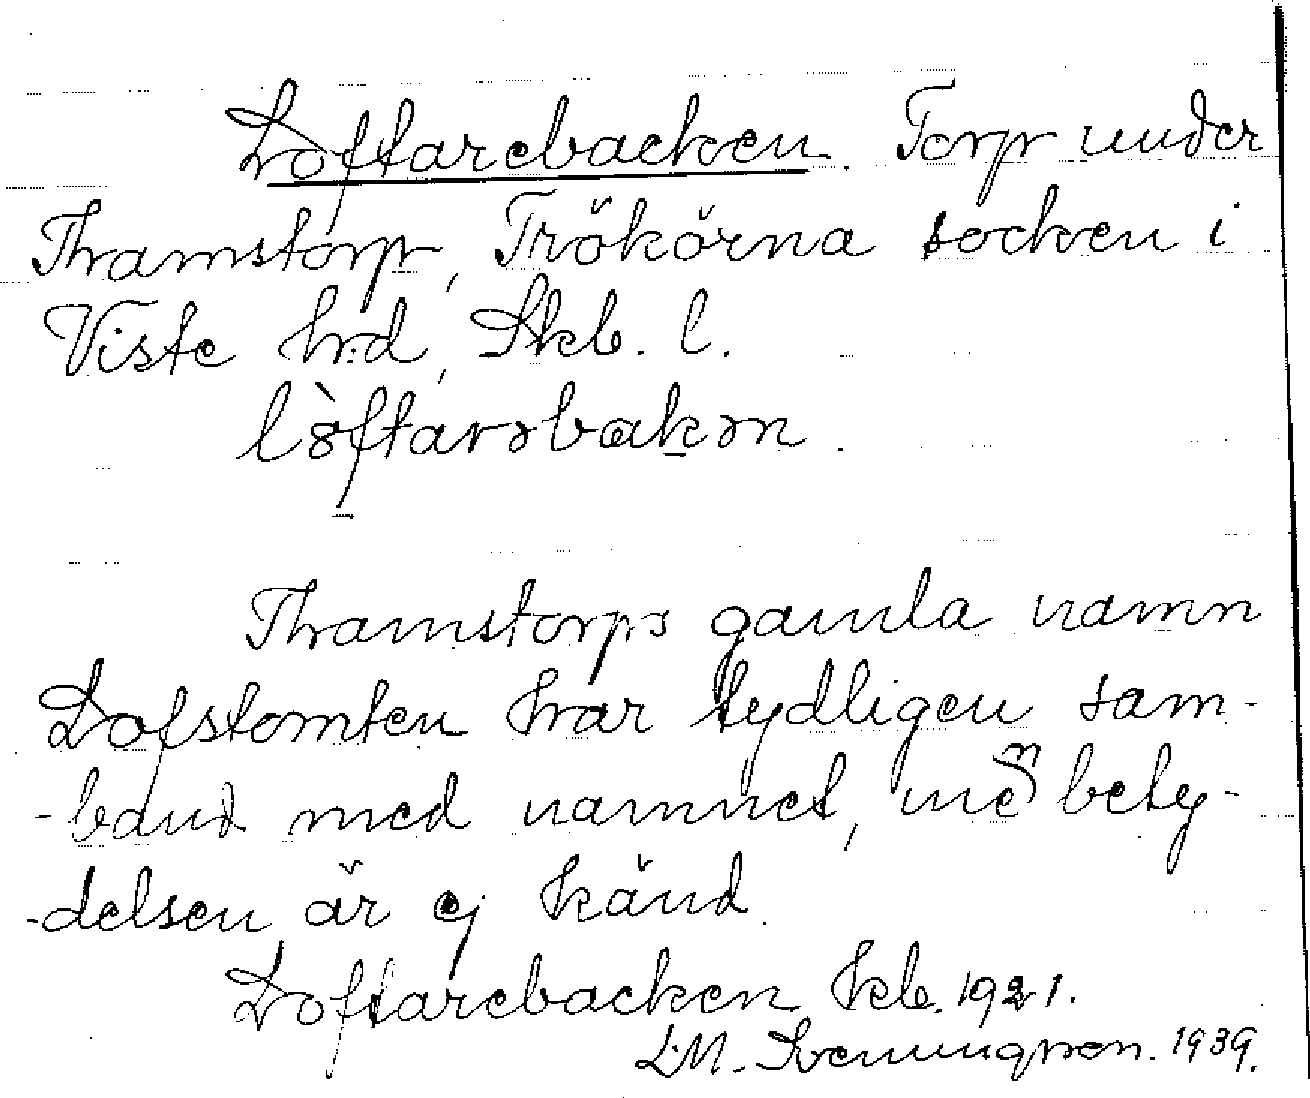 Loftarebacken. Torp under
Thamstorp, Trökörna socken i
Viste h:d, Skb. l.
lòftarəbakən.
Thamstorps gamla namn
Lofstomten har tydligen sam-
-band med namnet, men bety-
-delsen är ej känd.
Loftarebacken kb. 1921.
L.M. Svenungsson. 1939.